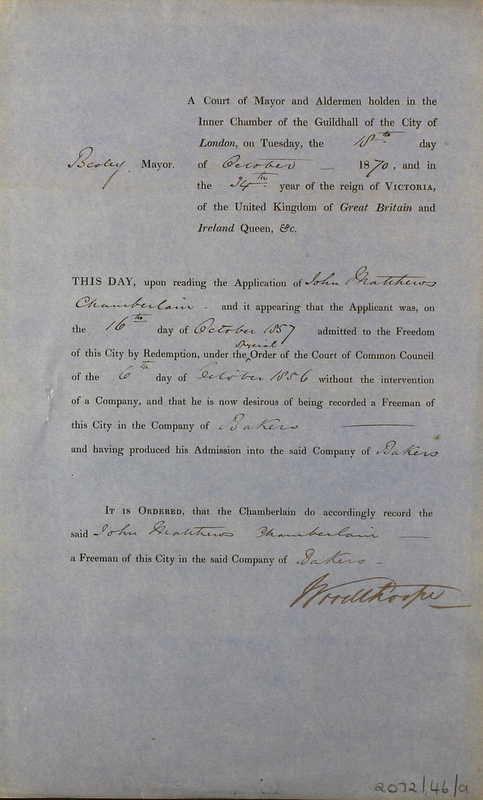 A Court of Mayor and Aldermen holden in the
Inner Chamber of the Guildhall of the City of
London, on Tuesday, the 18th day
Besley, Mayor. of October — 1870, and in
the 34th year of the reign of VICTORIA,
of the United Kingdom of Great Britain and
Ireland Queen, &c.
THIS DAY, upon reading the Application of John Matthews
Chamberlain - and it appearing that the Applicant was, on
the 16th day of October 1857 admitted to the Freedom
of this City by Redemption, under the ‸Special Order of the Court of Common Council
of the 6th day of October 1856 without the intervention
of a Company, and that he is now desirous of being recorded a Freeman of
this City in the Company of Bakers —
and having produced his Admission into the said Company of Bakers
IT IS ORDERED, that the Chamberlain do accordingly record the
said John Matthews Chamberlain —
a Freeman of this City in the said Company of Bakers -
Woodthorpe
2072/46/a